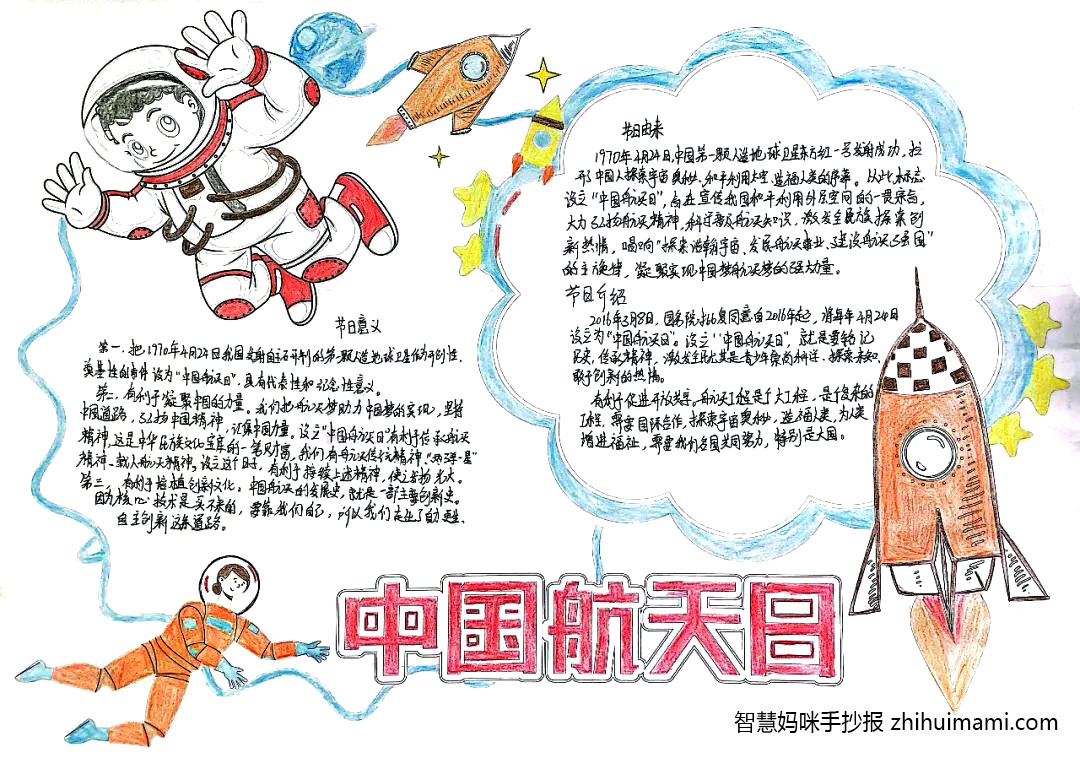 节日由来
1970年4月24日,中国第一颗人造地球卫星东方红一号发射成功,拉
开了中国人探索宇宙奥秘、和平利用太空、造福人类的序幕。从此,标志
设立“中国航天日”,旨在宣传我国和平利用外层空间的一贯宗旨,
大力弘扬航天精神,科学普及航天知识,激发全民族探索创
新热情,唱响“探索浩瀚宇宙、发展航天事业、建设航天强国”
的主旋律,凝聚实现中国梦航天梦的强大力量。
节日介绍
2016年3月8日,国务院批复同意自2016年起,将每年4月24日
设立为“中国航天日”。设立“中国航天日”,就是要铭记
历史、传承精神,激发全民尤其是青少年崇尚科学、探索未知、
敢于创新的热情。
有利于促进开放发展。航天工程是个大工程,是个复杂的
工程,需要国际合作。探索宇宙奥秘,造福人类,为人类
增进福祉,需要我们各国共同努力,特别是大国。
节日意义
第一,把1970年4月24日我国发射自主研制的第一颗人造地球卫星作为开创性、
奠基性的事件设为“中国航天日”,具有代表性和纪念性意义。
第二,有利于凝聚中国的力量。我们把航天梦助力中国梦的实现,坚持
中国道路,弘扬中国精神,汇集中国力量。设立“中国航天日”有利于传承航天
精神,这是中华民族文化宝库的一笔财富,我们有航天传统精神、“两弹一星”
精神、载人航天精神。设立这个日子,有利于持续上述精神,使之发扬光大。
第三,有利于培植创新文化。中国航天的发展史,就是一部自主创新史。
因为核心技术是买不来的,要靠我们自己,所以我们走出了自力更生、
自主创新这条道路。
中国航天日
智慧妈咪手抄报 zhihuimami.com